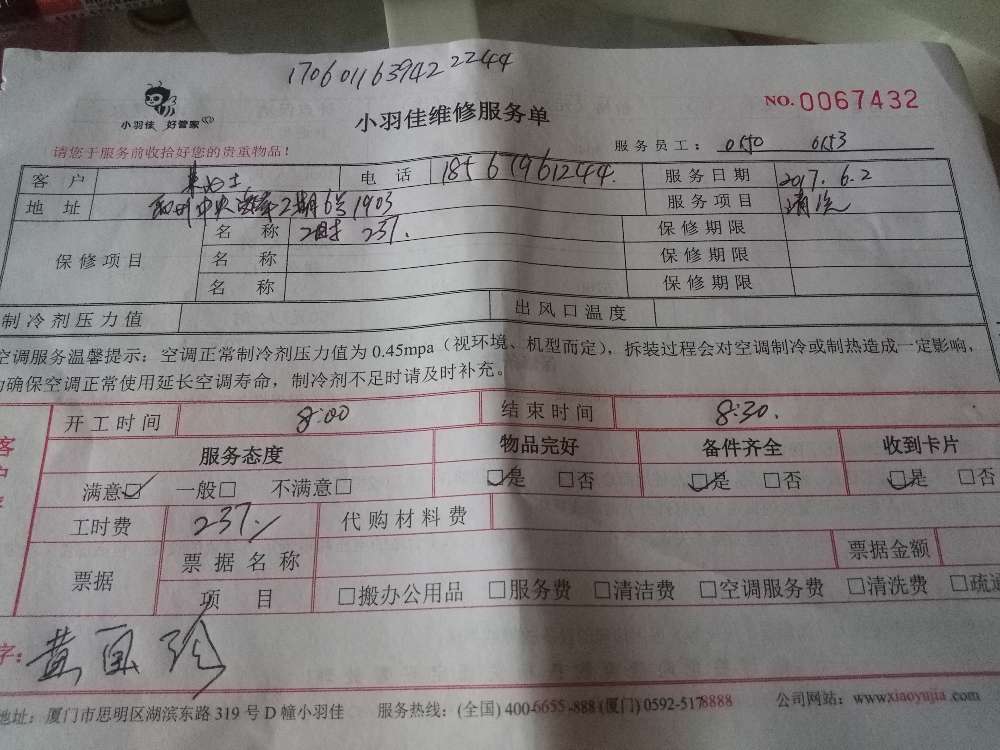 1706011639422244
小羽佳 好管家
小羽佳维修服务单
NO. 0067432
请您于服务前收拾好您的贵重物品！
服务员工：
客户 电话 服务日期 2017.6.2
地址 2期6号1903 服务项目 清洗
保修项目 名称 237. 保修期限
名称 保修期限
名称 保修期限
制冷剂压力值 出风口温度
空调服务温馨提示：空调正常制冷剂压力值为0.45mpa（视环境、机型而定），拆装过程会对空调制冷或制热造成一定影响，
为确保空调正常使用延长空调寿命，制冷剂不足时请及时补充。
开工时间 8:00 结束时间 8:30.
服务态度 物品完好 备件齐全 收到卡片
满意☑ 一般□ 不满意□ ☑是 □否 ☑是 □否 ☑是 □否
工时费 237 代购材料费
票据 票据名称 票据金额
项目 □搬办公用品 □服务费 □清洁费 □空调服务费 □清洗费 □疏通
字：黄
地址：厦门市思明区湖滨东路319号D幢小羽佳 服务热线：(全国) 400-6655-888 (厦门) 0592-5178888 公司网站：www.xiaoyujia.com